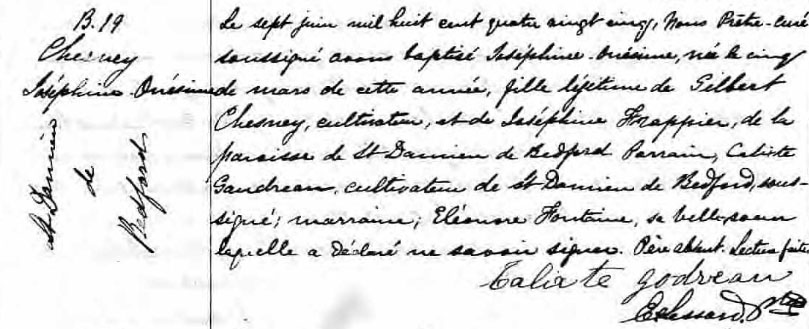 B.19
Chesney
Joséphine-Onésime
St Damien
de
Bedford
Le sept juin mil huit cent quatre vingt cinq, Nous Prêtre-curé
soussigné avons baptisé Joséphine-Onésime, née le cinq
de mars de cette année, fille légitime de Gilbert
Chesney, cultivateur, et de Joséphine Frappier, de la
paroisse de St Damien de Bedford Parrain, Calixte
Gaudreau, cultivateur de St Damien de Bedford, sous-
signé; marraine; Eléonore Fontaine, sa belle-soeur
laquelle a déclaré ne savoir signer. Père absent. Lecture faite.
Calixte godreau
Ptre